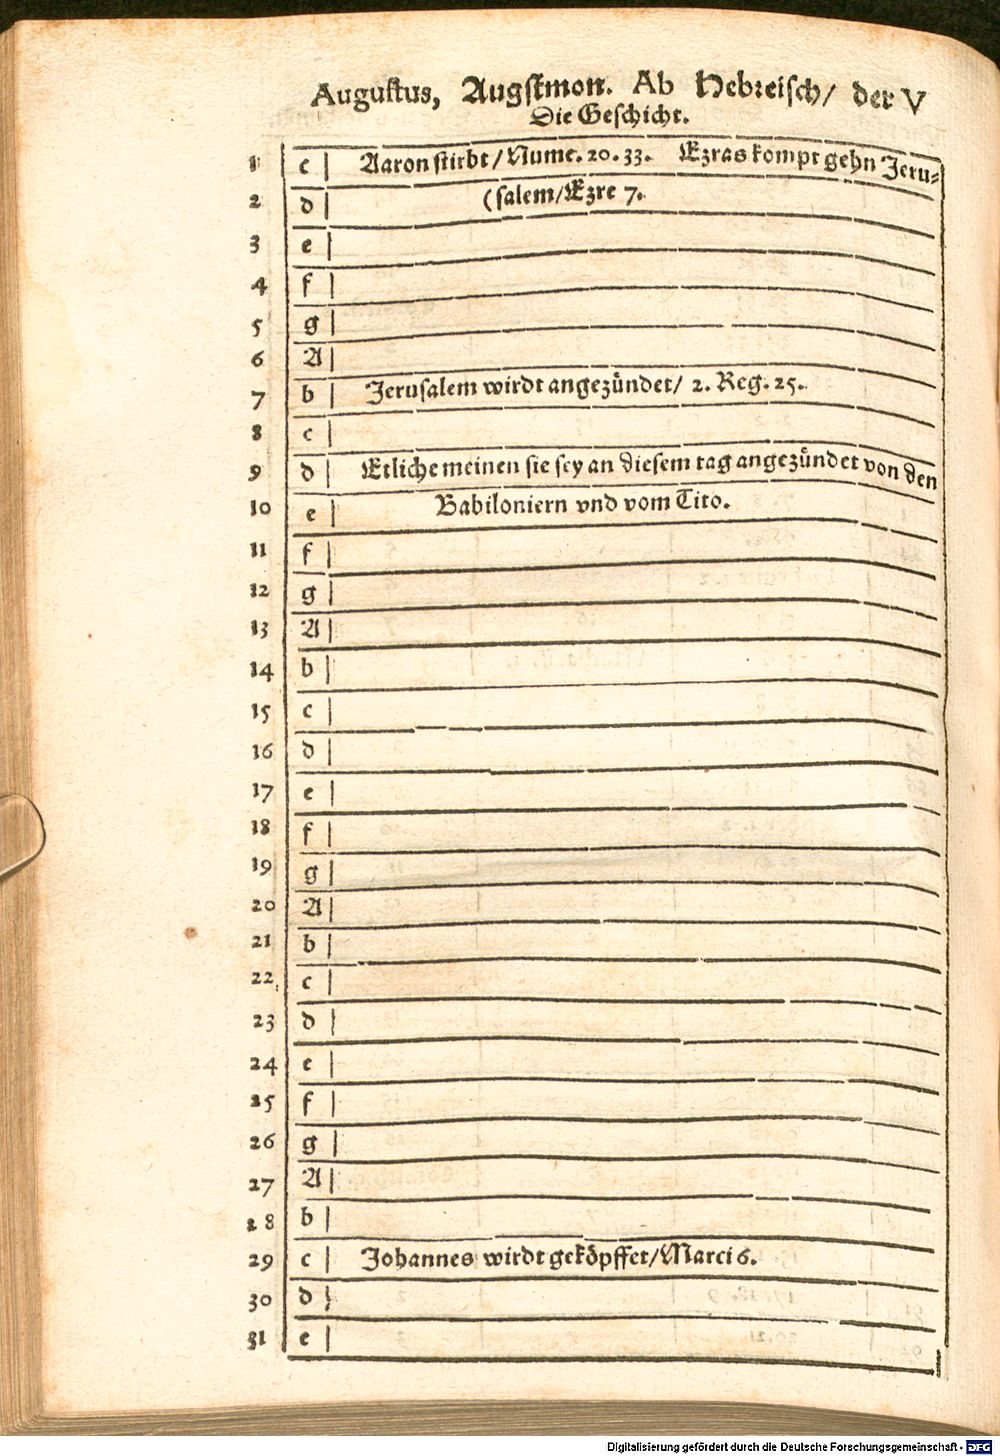 Augustus, Augstmon. Ab Hebreisch/ der V
Die Geschicht.
1 c Aaron stirbt/Nume. 20. 33. Ezras kompt gehn Jeru-
2 d (salem/Ezre 7.
3 e
4 f
5 g
6 A
7 b Jerusalem wirdt angezündet/ 2. Reg. 25.
8 c
9 d Etliche meinen sie sey an diesem tag angezündet von den
10 e Babiloniern vnd vom Tito.
11 f
12 g
13 A
14 b
15 c
16 d
17 e
18 f
19 g
20 A
21 b
22 c
23 d
24 e
25 f
26 g
27 A
28 b
29 c Johannes wirdt geköpffet/Marci 6.
30 d
31 e
Digitalisierung gefördert durch die Deutsche Forschungsgemeinschaft - DFG